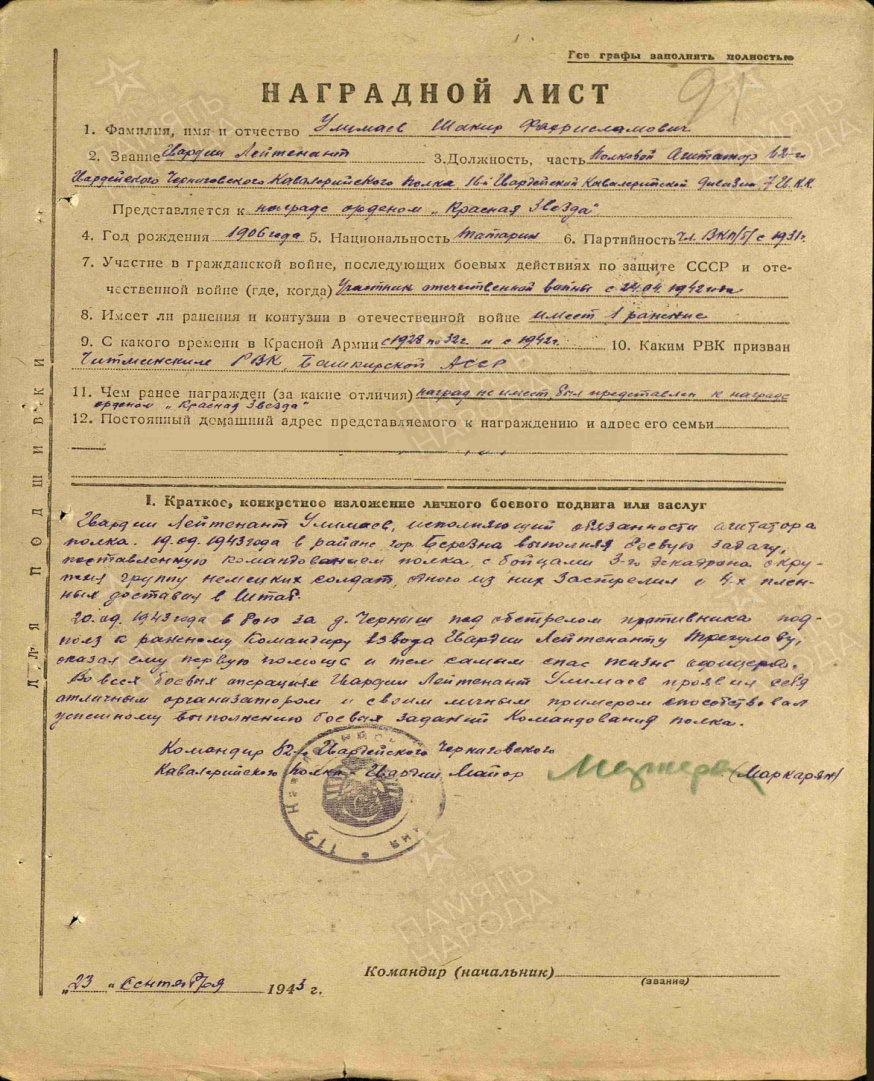 Все графы заполнять полностью
НАГРАДНОЙ ЛИСТ
1. Фамилия, имя и отчество Улимаев Шакир Фахрисламович
2. Звание Гвардии Лейтенант 3. Должность, часть Полковой Агитатор 62-го
Гвардейского Черниговского Кавалерийского полка 16й Гвардейский Кавалерийской дивизии 7 Гв. К.К.
Представляется к награде орденом „Красная Звезда"
4. Год рождения 1906 года 5. Национальность татарин 6. Партийность Чл. ВКП/б/ с 1931г.
7. Участие в гражданской войне, последующих боевых действиях по защите СССР и оте-
чественной войне (где, когда) Участник отечественной войны с 24.04.1942 года
8. Имеет ли ранения и контузии в отечественной войне имеет 1 ранение
9. С какого времени в Красной Армии с 1928 по 32г. и с 1942г. 10. Каким РВК призван
Читминским РВК, Башкирской АССР
11. Чем ранее награжден (за какие отличия) наград не имеет, был представлен к награде
орденом „Красная Звезда"
12. Постоянный домашний адрес представляемого к награждению и адрес его семьи
I. Краткое, конкретное изложение личного боевого подвига или заслуг
Гвардии Лейтенант Улимаев, исполняющий обязанности агитатора
полка. 19.09.1943 года в районе гор. Березна выполняя боевую задачу,
поставленную командованием полка, с бойцами 3-го эскадрона окру-
жил группу немецких солдат, одного из них застрелил и 4-х плен-
ных доставил в Штаб.
20.09.1943 года в бою за д. Черныш под обстрелом противника под-
полз к раненому Командиру взвода Гвардии Лейтенанту Трегулову,
оказал ему первую помощь и тем самым спас жизнь офицера.
Во всех боевых операциях Гвардии Лейтенант Улимаев проявил себя
отличным организатором и своим личным примером способствовал
успешному выполнению боевых заданий Командования полка.
Командир 62-го Гвардейского Черниговского
Кавалерийского полка - Гвардии Майор (Маркарян)
112
„23" сентября 1943 г.
Командир (начальник)
(звание)
ДЛЯ ПОДШИВКИ
ПАМЯТЬ НАРОДА